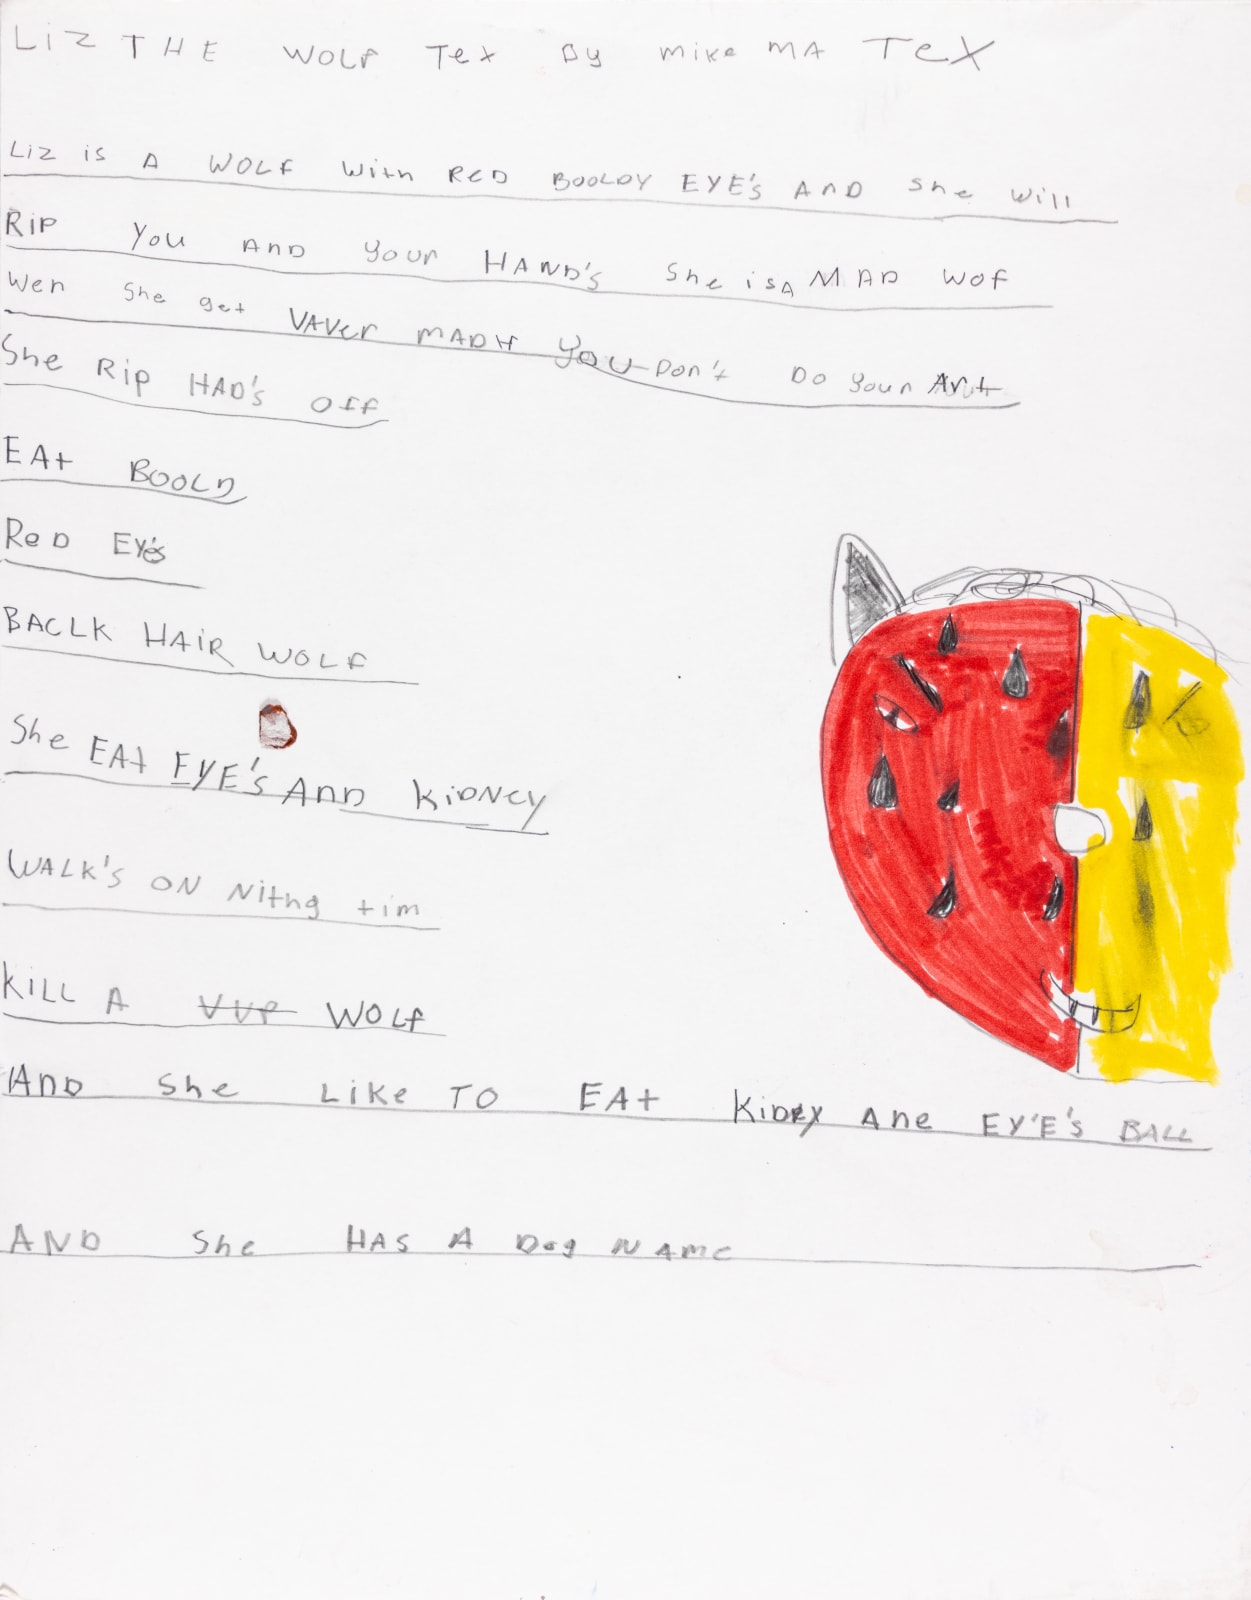 LiZ THE WOLF Tex By mike MA TeX
Liz is A WOLF with RED BOOLDY EYE's AnD she will
RiP you AnD your HAND's She is A MAD WOF
Wen She get VAVer MADH YOU Don't Do your Art
She Rip HAD's OFF
EAt BOOLD
ReD Eye's
BACLK HAiR WOLF
She EAt EYE's AnD KiDNEy
WALK's ON Nithg tim
KILL A VVP WOLF
AnD She LiKe TO EAt KiDRY Ane EY'E's BALL
AND She HAS A Dog NAME